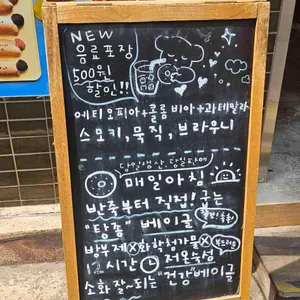 NEW
음료포장
500원
할인!!
에티오피아+콜롬비아+과테말라
스모키, 묵직, 브라우니
당일생산, 당일판매
매일아침
반죽부터 직접! 굽는
"탕종" 베이글
쫄깃! 촉촉!
방부제X화학첨가물X
부드러움
12시간 저온숙성
소화 잘~되는 "건강"베이글